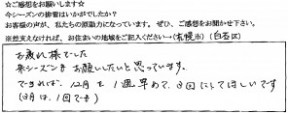 ☆ご感想をお願いします☆
今シーズンの排雪はいかがでしたか?
お客様の声が、私たちの原動力になっています。ぜひ、ご感想をお聞かせ下さい。
※差支えなければ、お住まいの地域をご記入ください→(札幌市)(白石区)
お疲れ様でした
来シーズンもお願いしたいと思っています。
できれば、12月を1週早めて、3回にしてほしいです
(3月は、1回でも)